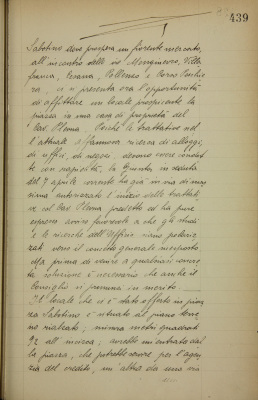 439
Sabotino dove prospera un fiorente mercato,
all'incontro delle vie Monginevro, Villa
franca, Cesana, Pollenzo e Corso Peschie
ra, si è presenta ora l'opportunità
di affittare un locale prospiciente la
piazza in una casa di proprietà del
Cav. Poiché le trattative nel
l'attuale affannosa ricerca di alloggi,
di uffici, di negozi, devono essere condot
te con rapidità, la Giunta in seduta
del 7 aprile corrente ha già in via di mas
sima autorizzato l'inizio delle trattati
ve col Cav. predetto ed ha pure
espresso avviso favorevole a che gli studi
e le ricerche dell'Ufficio siano
verso il concetto generale
Ma prima di venire a qualsiasi concre
ta soluzione è necessario che anche il
Consiglio si pronunci in merito.
Il locale che ci è stato offerto in piaz
za Sabotino è situato al piano terre
no rialzato; misura metri quadrati
92 all'incirca; avrebbe un'entrata dal
la piazza, che potrebbe servire per l'agen
zia del credito, un'altra da una via